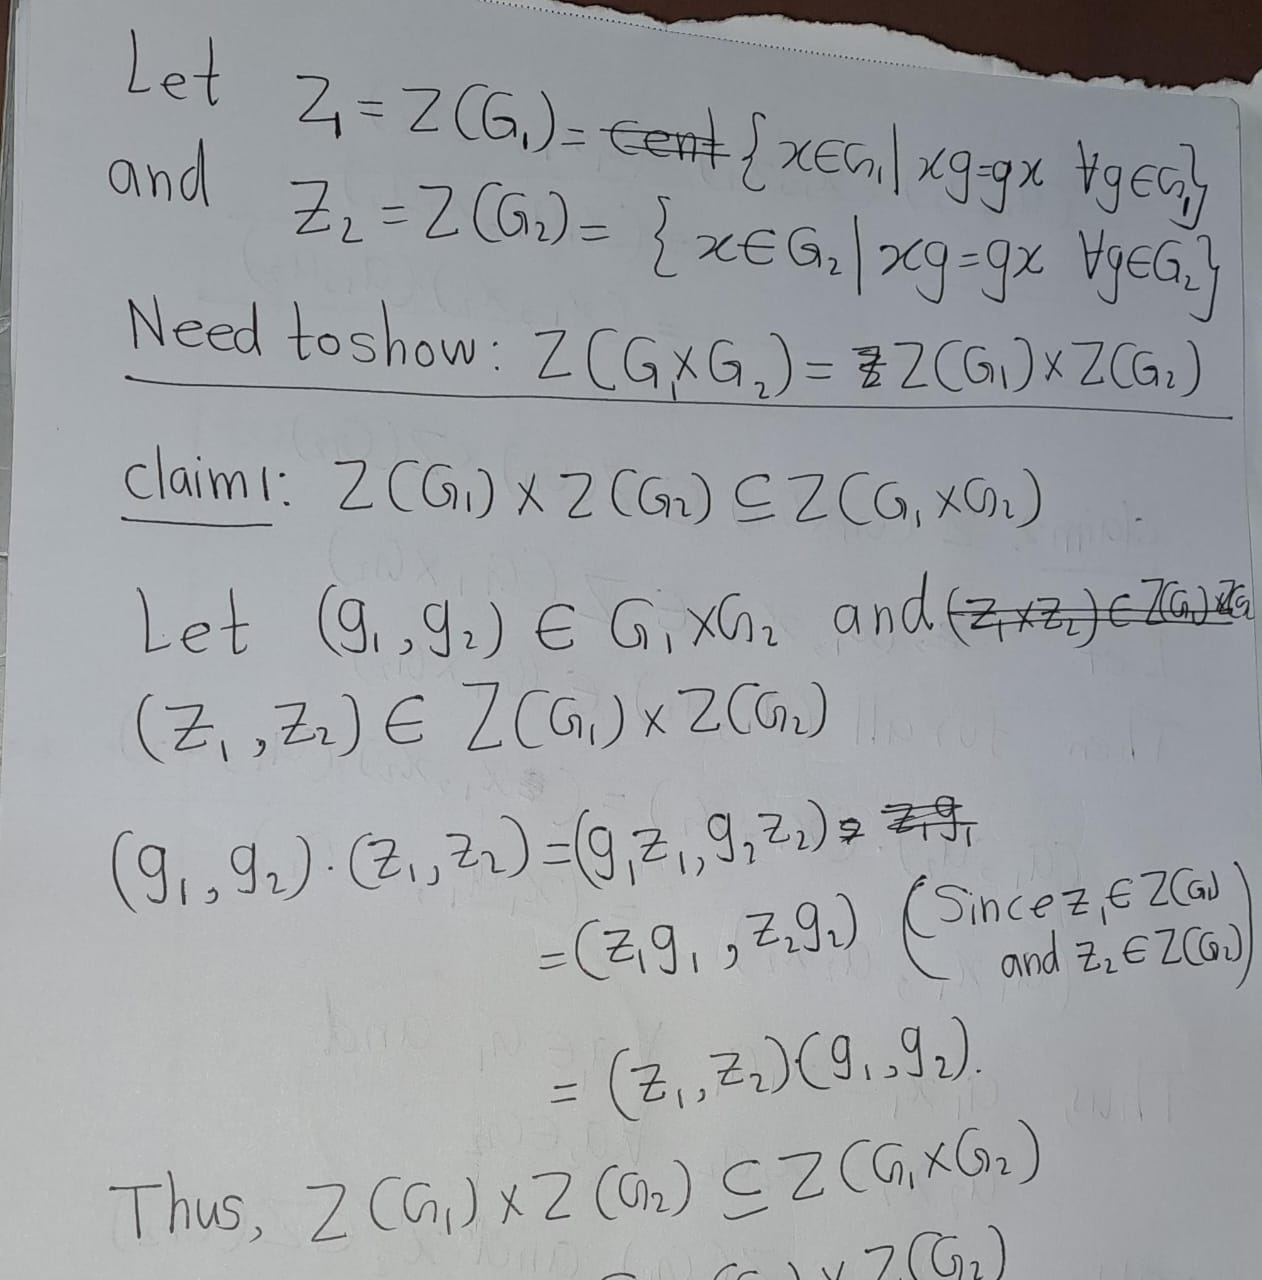 Let Z₁ = Z(G₁) = {x∈G₁ | xg=gx ∀g∈G₁}
and Z₂ = Z(G₂) = {x∈G₂ | xg=gx ∀g∈G₂}
Need to show: Z(G₁×G₂) = Z(G₁)×Z(G₂)
claim 1: Z(G₁)×Z(G₂) ⊆ Z(G₁×G₂)
Let (g₁,g₂) ∈ G₁×G₂ and
(z₁,z₂) ∈ Z(G₁)×Z(G₂)
(g₁,g₂)·(z₁,z₂) = (g₁z₁,g₂z₂)
= (z₁g₁,z₂g₂) (Since z₁∈Z(G₁)
and z₂∈Z(G₂))
= (z₁,z₂)(g₁,g₂).
Thus, Z(G₁)×Z(G₂) ⊆ Z(G₁×G₂)
× Z(G₂)